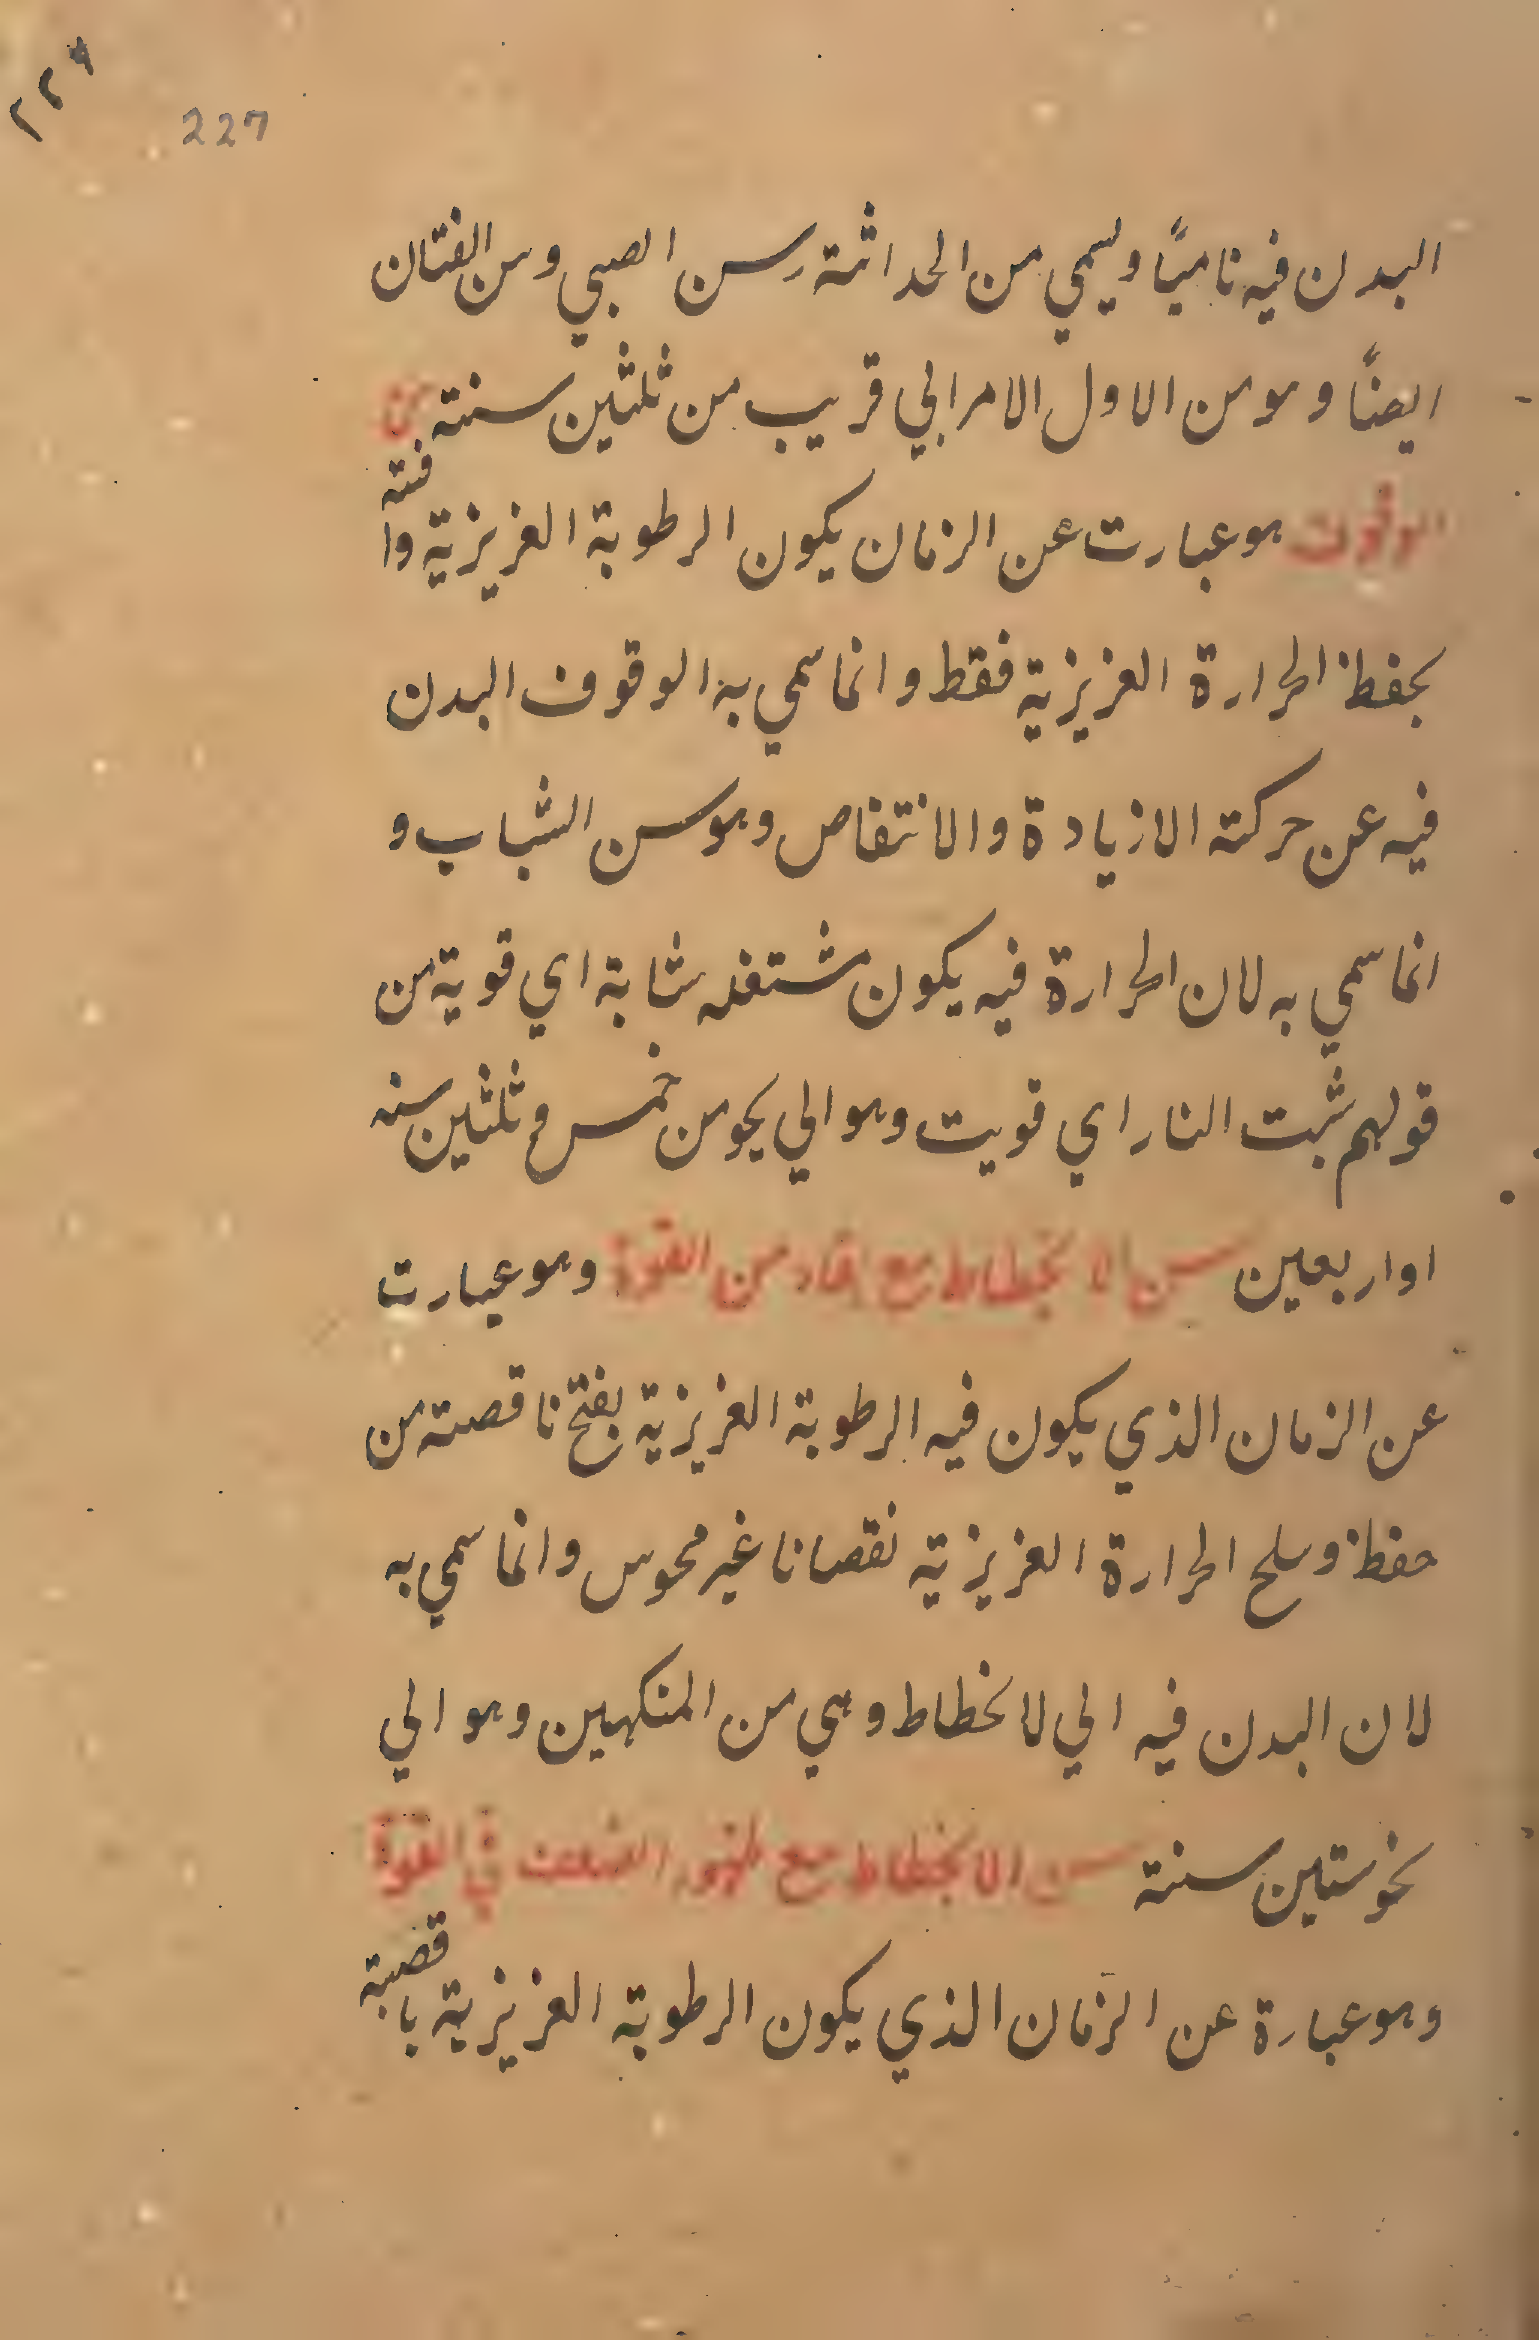 ٢٢٩
227
البدن فيه ناميًا ويسمي من الحداثة وسن الصبي وسن الفتان
ايضًا وهو من الاول الامر الي قريب من ثلثين سنة سن
الوقوف هو عبارت عن الزمان يكون الرطوبة الغريزية وافته
بحفظ الحرارة الغريزية فقط وانما سمي به الوقوف البدن
فيه عن حركته الازيادة والانتقاص وهو سن الشباب و
انما سمي به لان الحرارة فيه يكون مشتغله شابة اي قوية من
قولهم شبت النار اي قويت وهو الي نحو من خمس و ثلثين سنه
او اربعين سن الانحطاط مع بقاء من القوة وهو عبارت
عن الزمان الذي يكون فيه الرطوبة الغريزية بفتح ناقصة من
حفظ وسلح الحرارة الغريزية نقصانا غير محوس وانما سمي به
لان البدن فيه الي لانحطاط وهي من المنكهين وهو الي
نحو ستين سنة سن الانحطاط مع ظهور الضعف في القوة
وهو عبارة عن الزمان الذي يكون الرطوبة الغريزية باقصبة